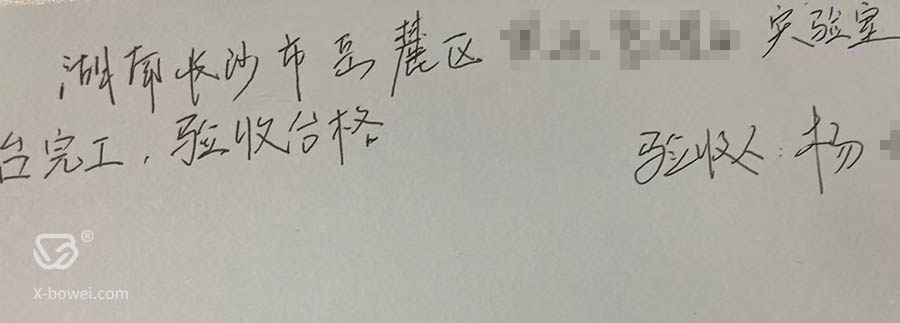 湖南长沙市岳麓区 实验室
台完工，验收合格
验收人：杨
X-bowei.com